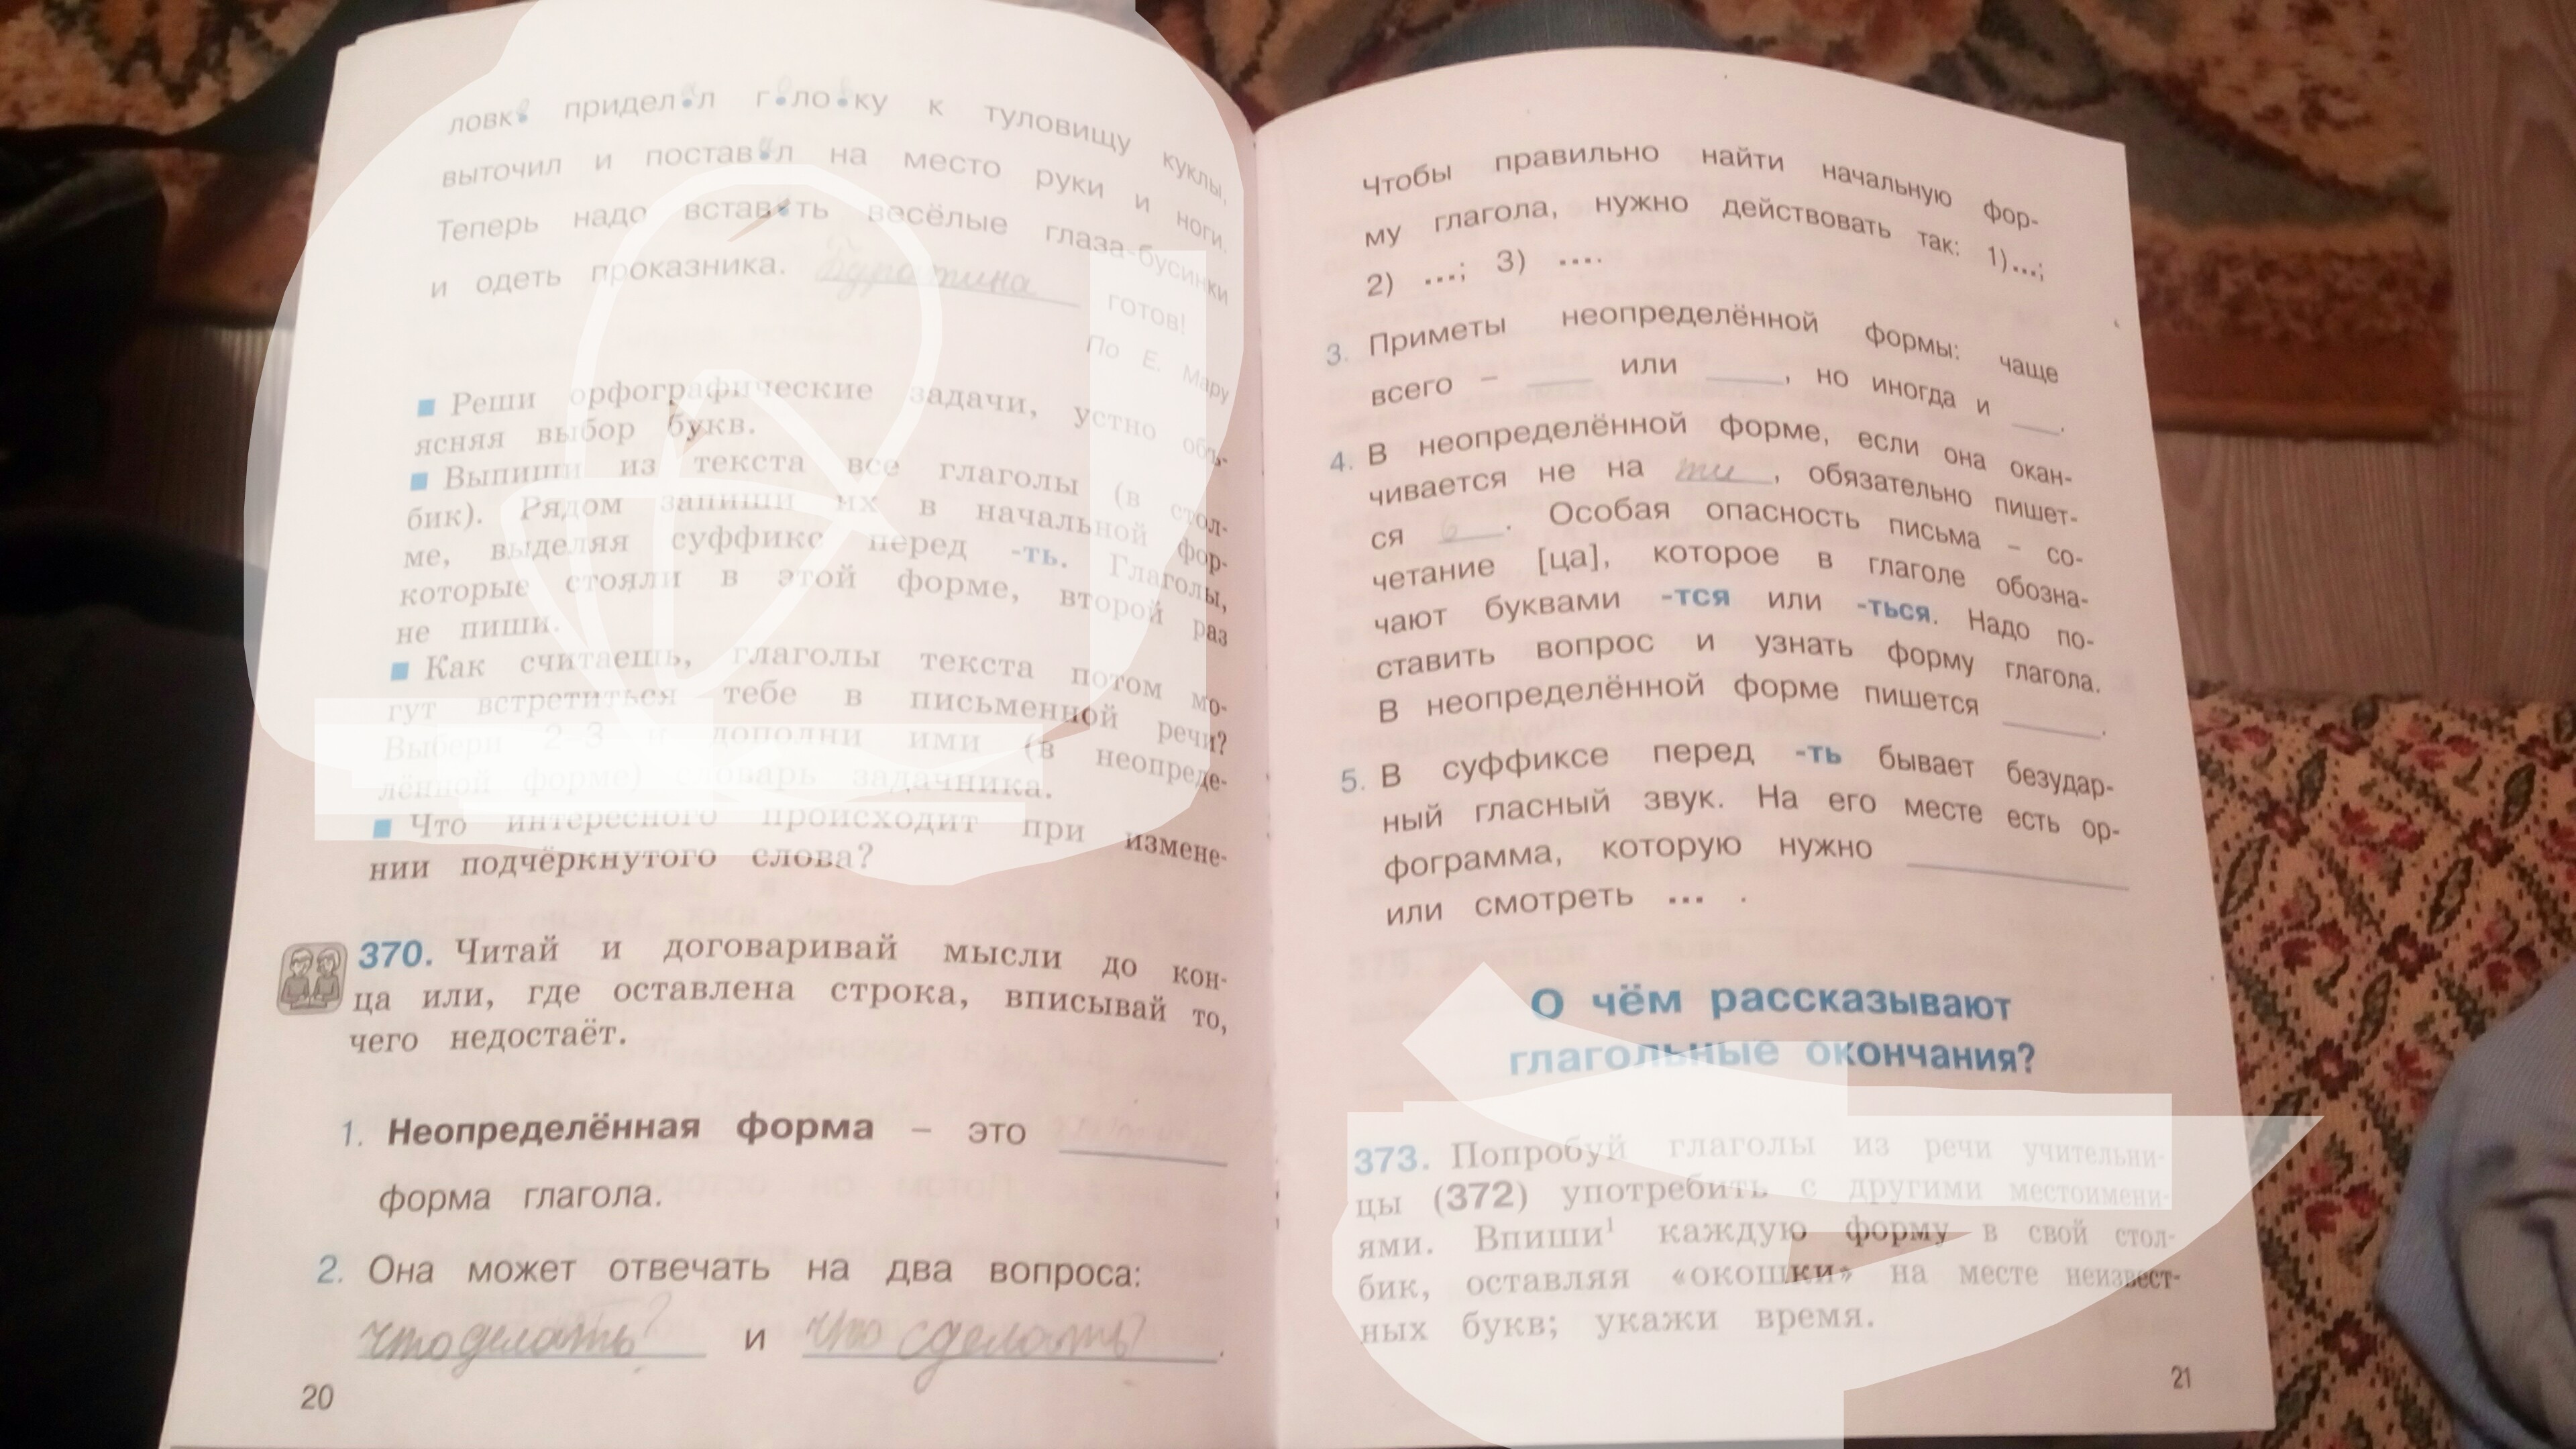 ловк• придел•л г•ло•ку к туловищу куклы,
выточил и постав•л на место руки и ноги.
Теперь надо встав•ть весёлые глаза-бусинки
и одеть проказника. Буратина готов!
По Е. Мару
■ Реши орфографические задачи, устно объ-
ясняя выбор букв.
■ Выпиши из текста все глаголы (в стол-
бик). Рядом запиши их в начальной фор-
ме, выделяя суффикс перед -ть. Глаголы,
которые стояли в этой форме, второй раз
не пиши.
■ Как считаешь, глаголы текста потом мо-
гут встретиться тебе в письменной речи?
Выбери 2–3 и дополни ими (в неопреде-
лённой форме) словарь задачника.
■ Что интересного происходит при измене-
нии подчёркнутого слова?
370. Читай и договаривай мысли до кон-
ца или, где оставлена строка, вписывай то,
чего недостаёт.
1. Неопределённая форма – это ____
форма глагола.
2. Она может отвечать на два вопроса:
что делать? и что сделать?.
20
Чтобы правильно найти начальную фор-
му глагола, нужно действовать так: 1)...;
2) ...; 3) ....
3. Приметы неопределённой формы: чаще
всего – ____ или ____, но иногда и ____.
4. В неопределённой форме, если она окан-
чивается не на ти, обязательно пишет-
ся ь. Особая опасность письма – со-
четание [ца], которое в глаголе обозна-
чают буквами -тся или -ться. Надо по-
ставить вопрос и узнать форму глагола.
В неопределённой форме пишется ____.
5. В суффиксе перед -ть бывает безудар-
ный гласный звук. На его месте есть ор-
фограмма, которую нужно ____
или смотреть ... .
О чём рассказывают
глагольные окончания?
373. Попробуй глаголы из речи учительни-
цы (372) употребить с другими местоимени-
ями. Впиши¹ каждую форму в свой стол-
бик, оставляя «окошки» на месте неизвест-
ных букв; укажи время.
21